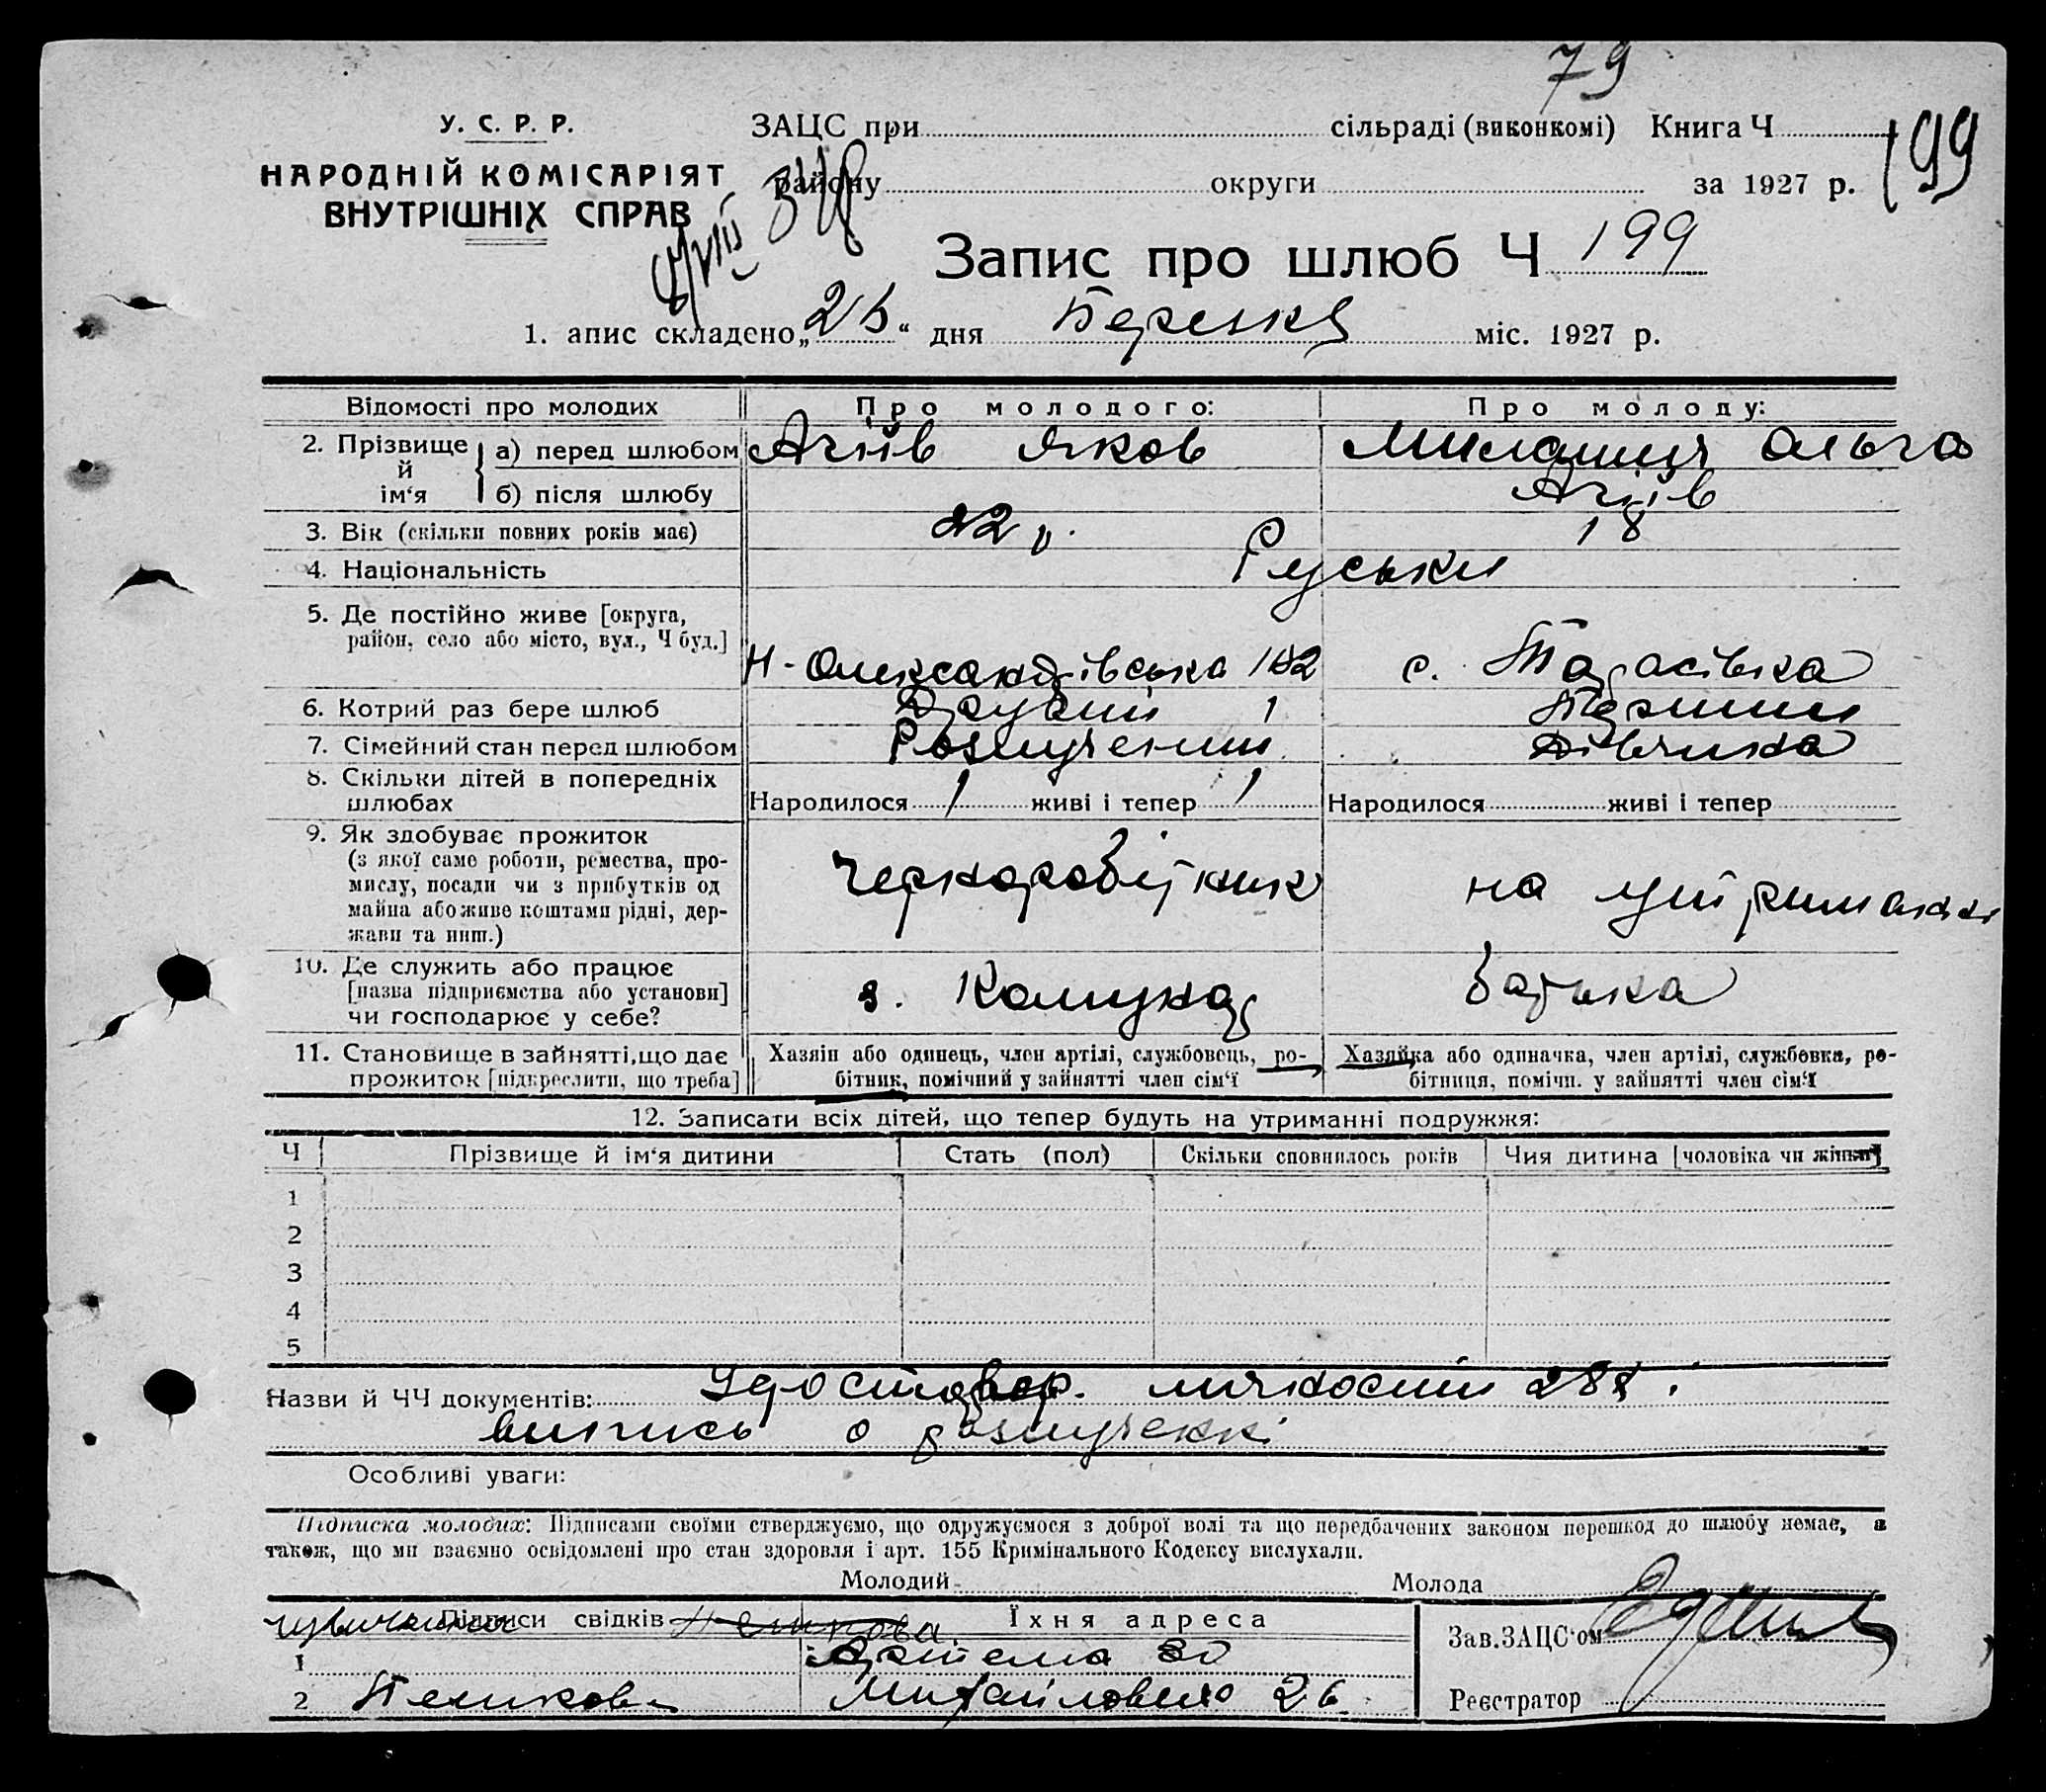 79
У. С. Р. Р.
НАРОДНІЙ КОМІСАРІЯТ
ВНУТРІШНІХ СПРАВ
ЗАЦС при сільраді (виконкомі) Книга Ч
199
району округи за 1927 р.
Запис про шлюб Ч 199
1. апис складено „ “ дня Березня міс. 1927 р.
Відомості про молодих Про молодого: Про молоду:
2. Прізвище й ім‘я
а) перед шлюбом Агіїв Яков Ольга
б) після шлюбу Агіїв
3. Вік (скільки повних років має) 22 р. 18
4. Національність Руськи
5. Де постійно живе [округа,
район, село або місто, вул., Ч буд.]
Н-Олександрівська с. Тарасівка
6. Котрий раз бере шлюб Другий 1 Перший
7. Сімейний стан перед шлюбом Розлучений Дівчина
8. Скільки дітей в попередніх
шлюбах
Народилося 1 живі і тепер 1 Народилося живі і тепер
9. Як здобуває прожиток
(з якої саме роботи, ремества, про-
мислу, посади чи з прибутків од
майна або живе коштами рідні, дер-
жави та инш.)
Черноробітник на утриманні
10. Де служить або працює
[назва підприємства або установи]
чи господарює у себе?
з. Комунар батька
11. Становище в зайнятті, що дає
прожиток [підкреслити, що треба]
Хазяін або одинець, член артілі, службовець, ро-
бітник, помічний у зайнятті член сім‘ї
Хазяйка або одиначка, член артілі, службовка, ро-
бітниця, помічн. у зайнятті член сім‘ї
12. Записати всіх дітей, що тепер будуть на утриманні подружжя:
Ч Прізвище й ім‘я дитини Стать (пол) Скільки сповнилось років Чия дитина [чоловіка чи жінки]
1
2
3
4
5
Назви й ЧЧ документів: Удостовер. личности
випись о розлученні
Особливі уваги:
Підписка молодих: Підписами своїми стверджуємо, що одружуємося з доброї волі та що передбачених законом перешкод до шлюбу немає, а
також, що ми взаємно освідомлені про стан здоровля і арт. 155 Кримінального Кодексу вислухали.
Молодий Молода
Підписи свідків Їхня адреса
Зав.ЗАЦС‘ом
1 Артема 30
2 Пеликова 26
Реєстратор